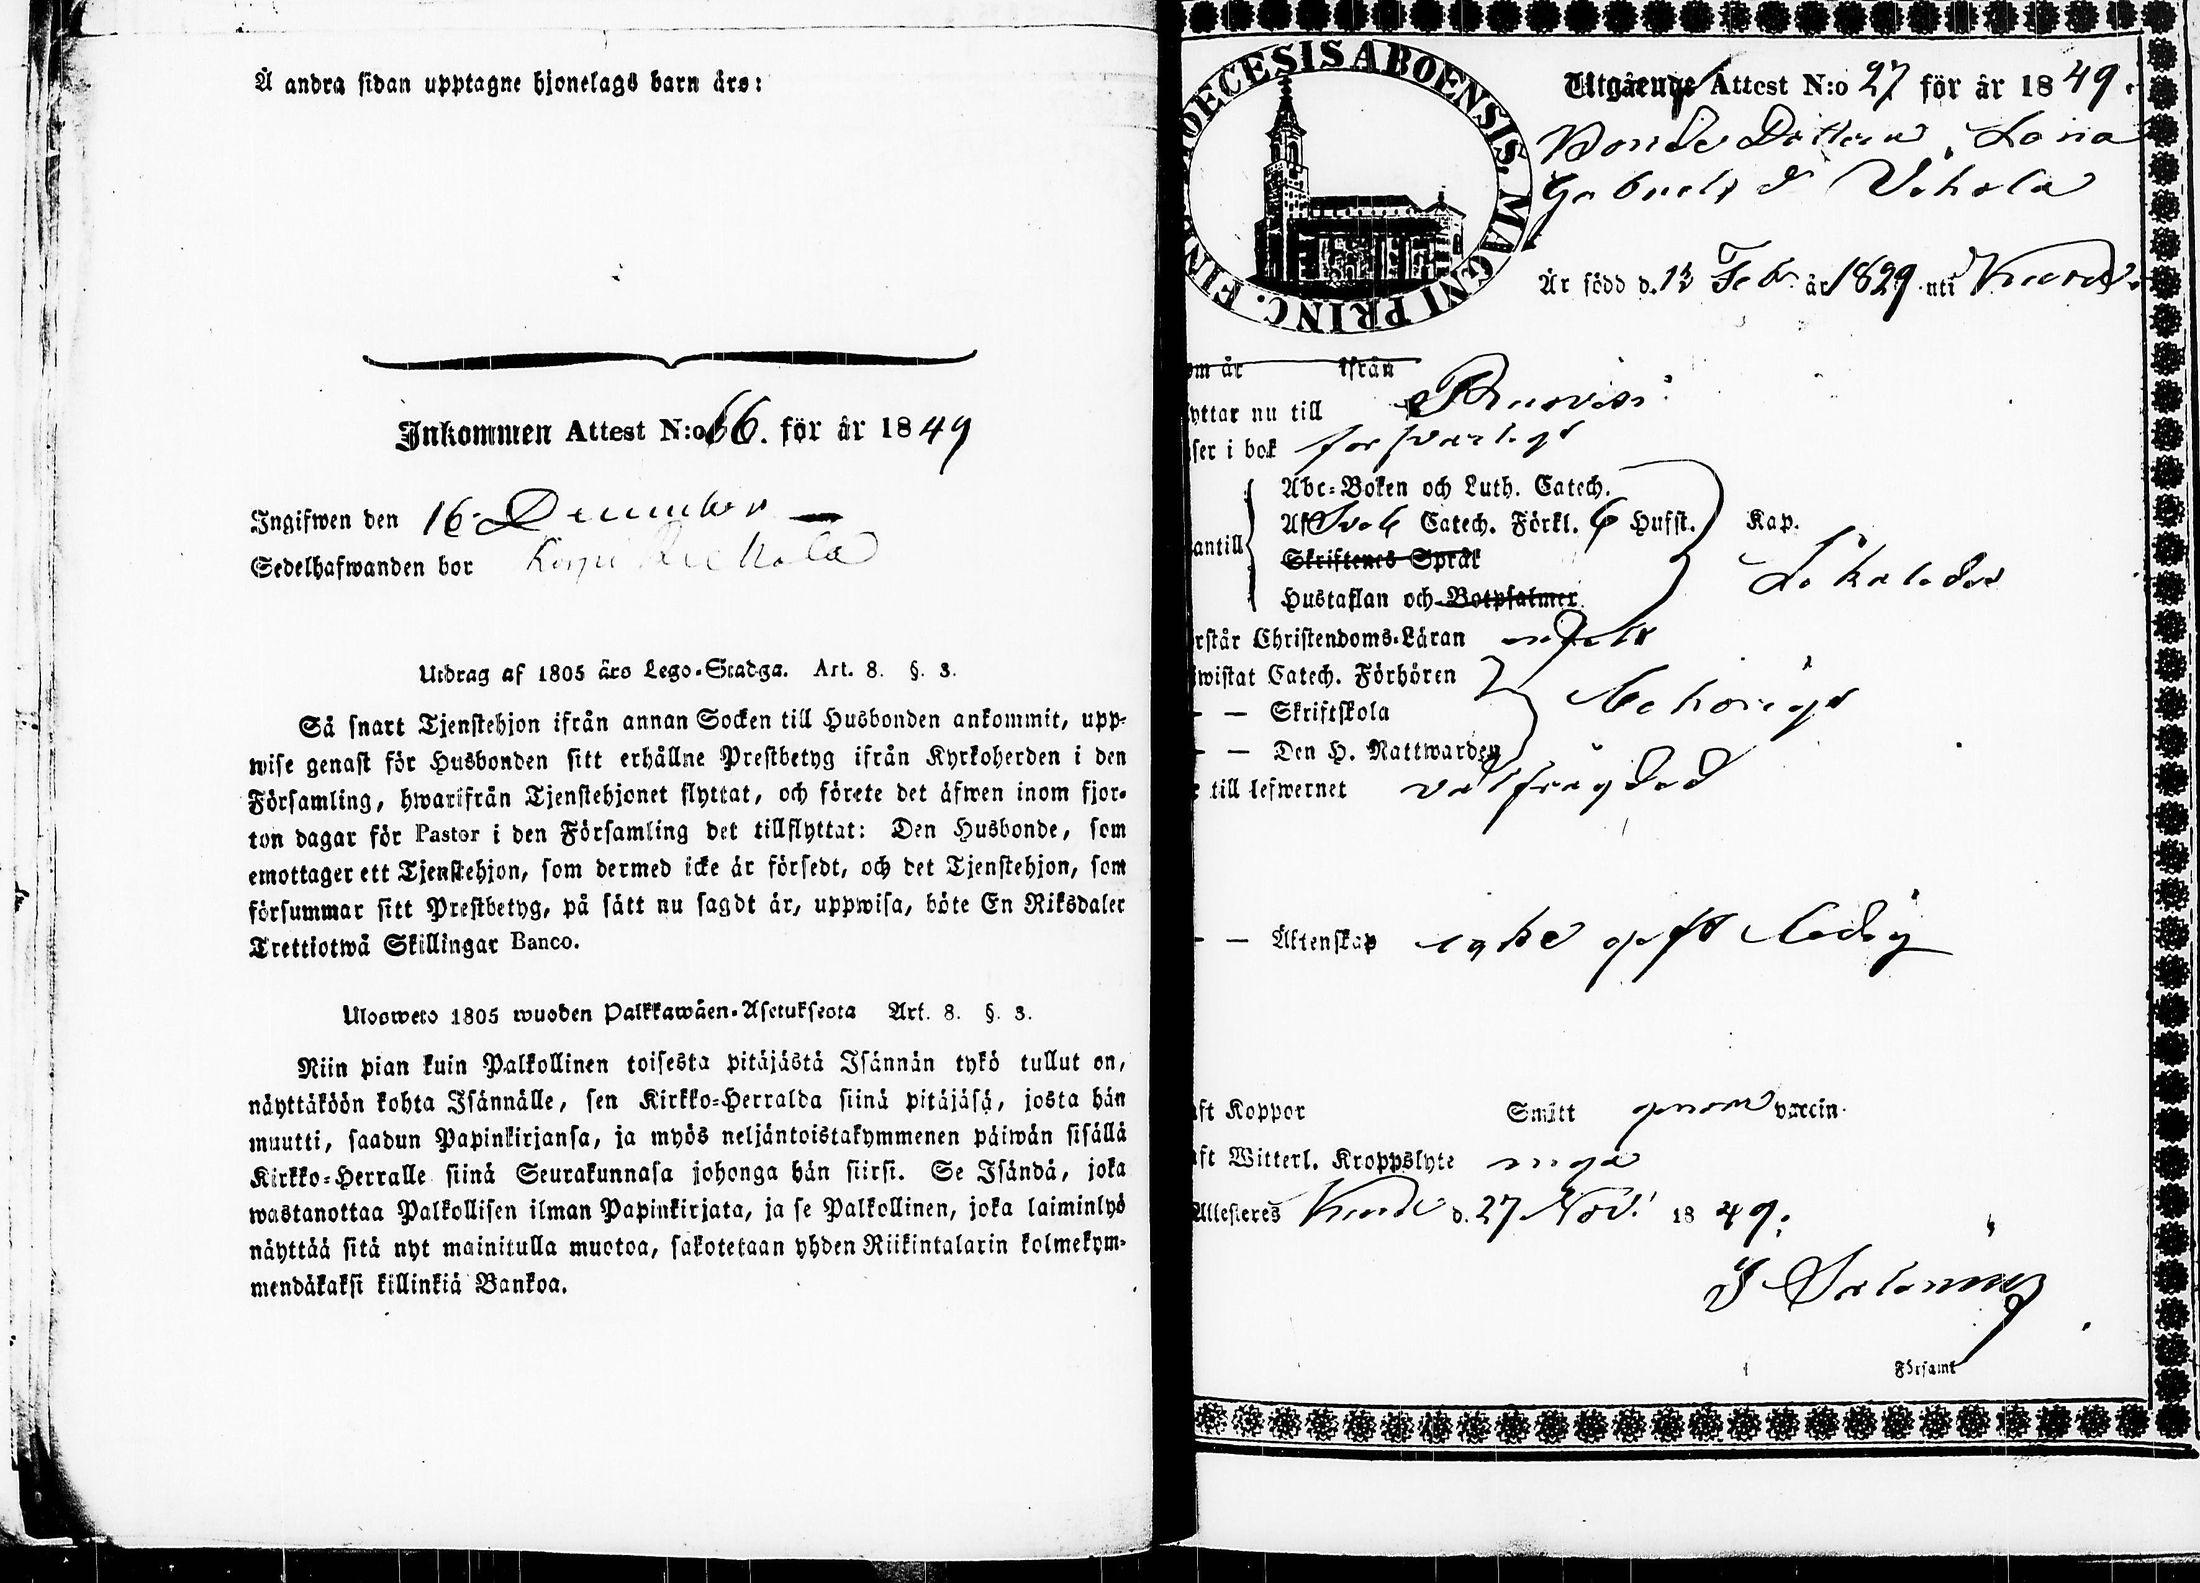 Å andra sidan upptagne hjonelags barn äro:
Inkommen Attest N:o 66. för år 1849
Ingifwen den 16 December
Sedelhafwanden bor
Utdrag af 1805 års Lego-Stadga. Art. 8. §. 3.
Så snart Tjenstehjon ifrån annan Socken till Husbonden ankommit, upp-
wise genast för Husbonden sitt erhållne Prestbetyg ifrån Kyrkoherden i den
Församling, hwarifrån Tjenstehjonet flyttat, och förete det äfwen inom fjor-
ton dagar för Pastor i den Församling det tillflyttat: Den Husbonde, som
emottager ett Tjenstehjon, som dermed icke är försedt, och det Tjenstehjon, som
försummar sitt Prestbetyg, på sätt nu sagdt är, uppwisa, böte En Riksdaler
Trettiotwå Skillingar Banco.
Ulosweto 1805 wuoden Palkkawäen-Asetuksesta Art. 8. §. 3.
Niin pian kuin Palkollinen toisesta pitäjästä Isännän tykö tullut on,
näyttäköön kohta Isännälle, sen Kirkko-Herralda siinä pitäjäsä, josta hän
muutti, saadun Papinkirjansa, ja myös neljäntoistakymmenen päiwän sisällä
Kirkko-Herralle siinä Seurakunnasa johonga hän siirsi. Se Isändä, joka
wastanottaa Palkollisen ilman Papinkirjata, ja se Palkollinen, joka laiminlyö
näyttää sitä nyt mainitulla muotoa, sakotetaan yhden Riikintalarin kolmekym-
mendäkaksi killinkiä Bankoa.
DIOECESIS ABOENSIS, MAGNI PRINC. FINL.
Utgående Attest N:o 27 för år 1849.
Bonde Dottern Lovisa
Gabriels d
Är född d. 13 Feb. år 1829 uti
om år ifrån
yttar nu till Rusko
ser i bok försvarligt
Abc-Boken och Luth. Catech.
Af Sveb Catech. Förkl. 6 Hufst. Kap.
antill
Skriftenes Språk
Hustaflan och Botpsalmer
rstår Christendoms-Läran enfalt
wistat Catech. Förhören
— — Skriftskola behörigt
— — Den H. Nattwarden
r till lefwernet välfrägdad
— — Äktenskap icke gift ledig
aft Koppor Smitt genom vaccin.
aft Witterl. Kroppslyte inga
Attesteres d. 27 Nov. 1849.
Församl